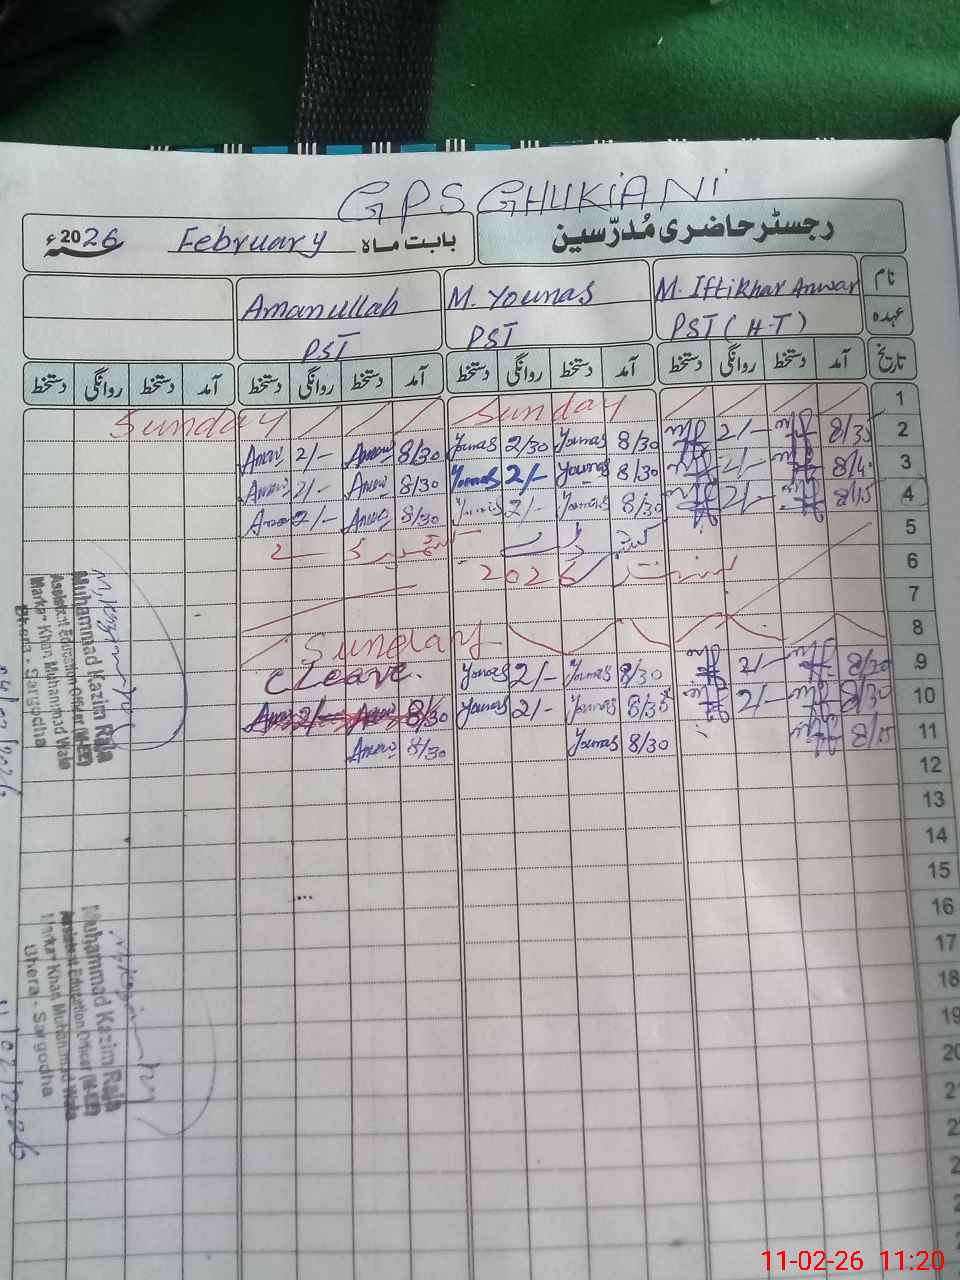 GPS GHUKIANI
رجسٹر حاضری مُدرّسین
بابت ماہ February 2026ء
نام M. Iftikhar Anwar M. Younas Amanullah
عہدہ PST (H-T) PST PST
تاریخ آمد دستخط روانگی دستخط آمد دستخط روانگی دستخط آمد دستخط روانگی دستخط آمد دستخط روانگی دستخط
1 Sunday Sunday
2 8/35 2/- 8/30 Younas 2/30 Younas 8/30 2/-
3 2/- 8/30 Younas 2/- Younas 8/30 2/-
4 8/15 2/- 8/30 Younas 2/- 8/30 2/-
5
6 2026
7
8 Sunday
9 8/30 2/- 8/30 Younas 2/- Younas C Leave.
10 8/30 2/- 8/35 Younas 2/- Younas 8/30 2/-
11 8/15 8/30 Younas 8/30
12
13
14
15
16
17
18
19
Muhammad Kazim Raja
Assistant Education Officer (M-EE)
Markaz Khan Muhammad Wala
Bhera - Sargodha
Muhammad Kazim Raja
Assistant Education Officer (M-EE)
Markaz Khan Muhammad Wala
Bhera - Sargodha
11/02/2026
11-02-26 11:20